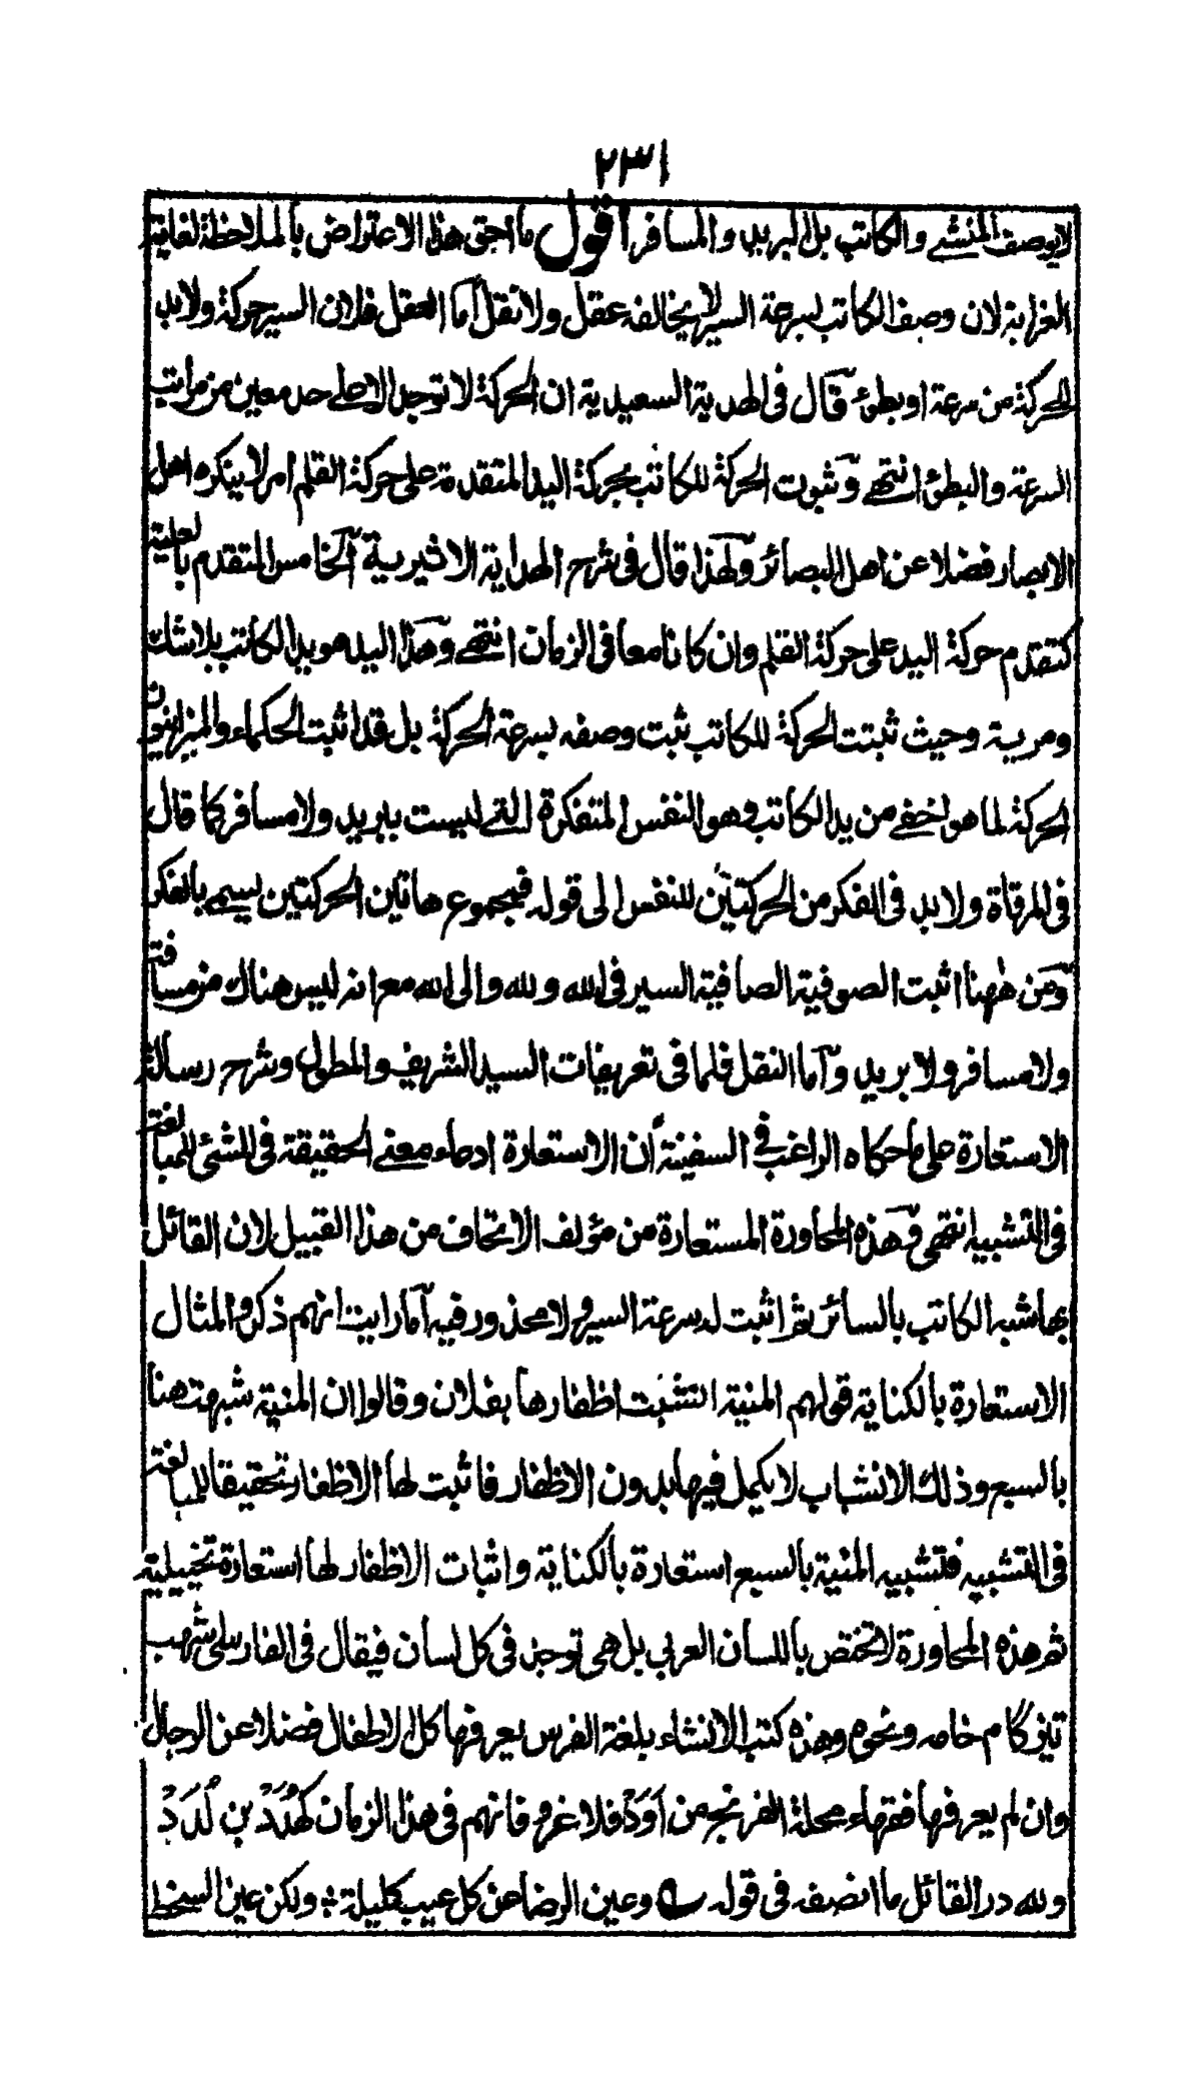 ٢٣١
لا يوصف المنشے والكاتب بل البريد والمسافر اقول ما احق هذا الاعتراض بالملاحظة لغاية
الغرابة لان وصف الكاتب بسرعة السير لا يخالفه عقل ولا نقل اما العقل فلان السير حركة ولا بد
للحركة من سرعة او بطوء قال فى الهدية السعيدية ان الحركة لا توجد الا على حد معين من مراتب
السرعة والبطوء انتهے وثبوت الحركة للكاتب بحركة اليد المتقدمة على حركة القلم امر لا ينكره اهل
الابصار فضلا عن اهل البصائر ولهذا قال فى شرح الهداية الاثيرية الخامس المتقدم بالعلية
كتقدم حركة اليد على حركة القلم وان كانا معا فى الزمان انتهے وهذا اليد هو يد الكاتب بلا شك
ومرية وحيث ثبتت الحركة للكاتب ثبت وصفه بسرعة الحركة بل قد اثبت الحكماء والميزانيون
الحركة لما هو اخفے من يد الكاتب وهو النفس المتفكرة التے ليست ببريد ولا مسافر كما قال
فى المرقاة ولا بد فى الفكر من الحركتين للنفس الى قوله فمجموع هاتين الحركتين يسمے بالفكر
ومن ههنا اثبت الصوفية الصافية السير فى الله ولله والى الله مع انه ليس هناك من مسافة
ولا مسافر ولا بريد واما النقل فلما فى تعريفات السيد الشريف والمطول وشرح رسالة
الاستعارة على ما حكاه الراغب فے السفينة ان الاستعارة ادعاء معنے الحقيقة فى الشئ للمبالغة
فى التشبيه انتهى وهذه المحاورة المستعارة من مؤلف الاتحاف من هذا القبيل لان القائل
بها شبه الكاتب بالسائر ثم اثبت له سرعة السير ولا محذور فيه اما رايت انهم ذكروا المثال
الاستعارة بالكناية قولهم المنية انتشبت اظفارها بفلان وقالوا ان المنية شبهت هنا
بالسبع وذلك الانشباب لا يكمل فيها بدون الاظفار فاثبت لها الاظفار تحقيقا للمبالغة
فى التشبيه فتشبيه المنية بالسبع استعارة بالكناية واثبات الاظفار لها استعارة تخييلية
ثم هذه المحاورة لا تختص باللسان العربي بل هى توجد فى كل لسان فيقال فى الفارسى شهب
تيز گام خامه ونحوه وهذه كتب الانشاء بلغة الفرس يعرفها كل الاطفال فضلا عن الرجال
وان لم يعرفها فقهاء محلة الفرنج من اَوَدْ فلا غرو فانهم فى هذا الزمان كهُدَدْ بن لُدَدْ
ولله در القائل ما انصفه فى قوله ؎ وعين الرضا عن كل عيب كليلة ؛ ولكن عين السخط